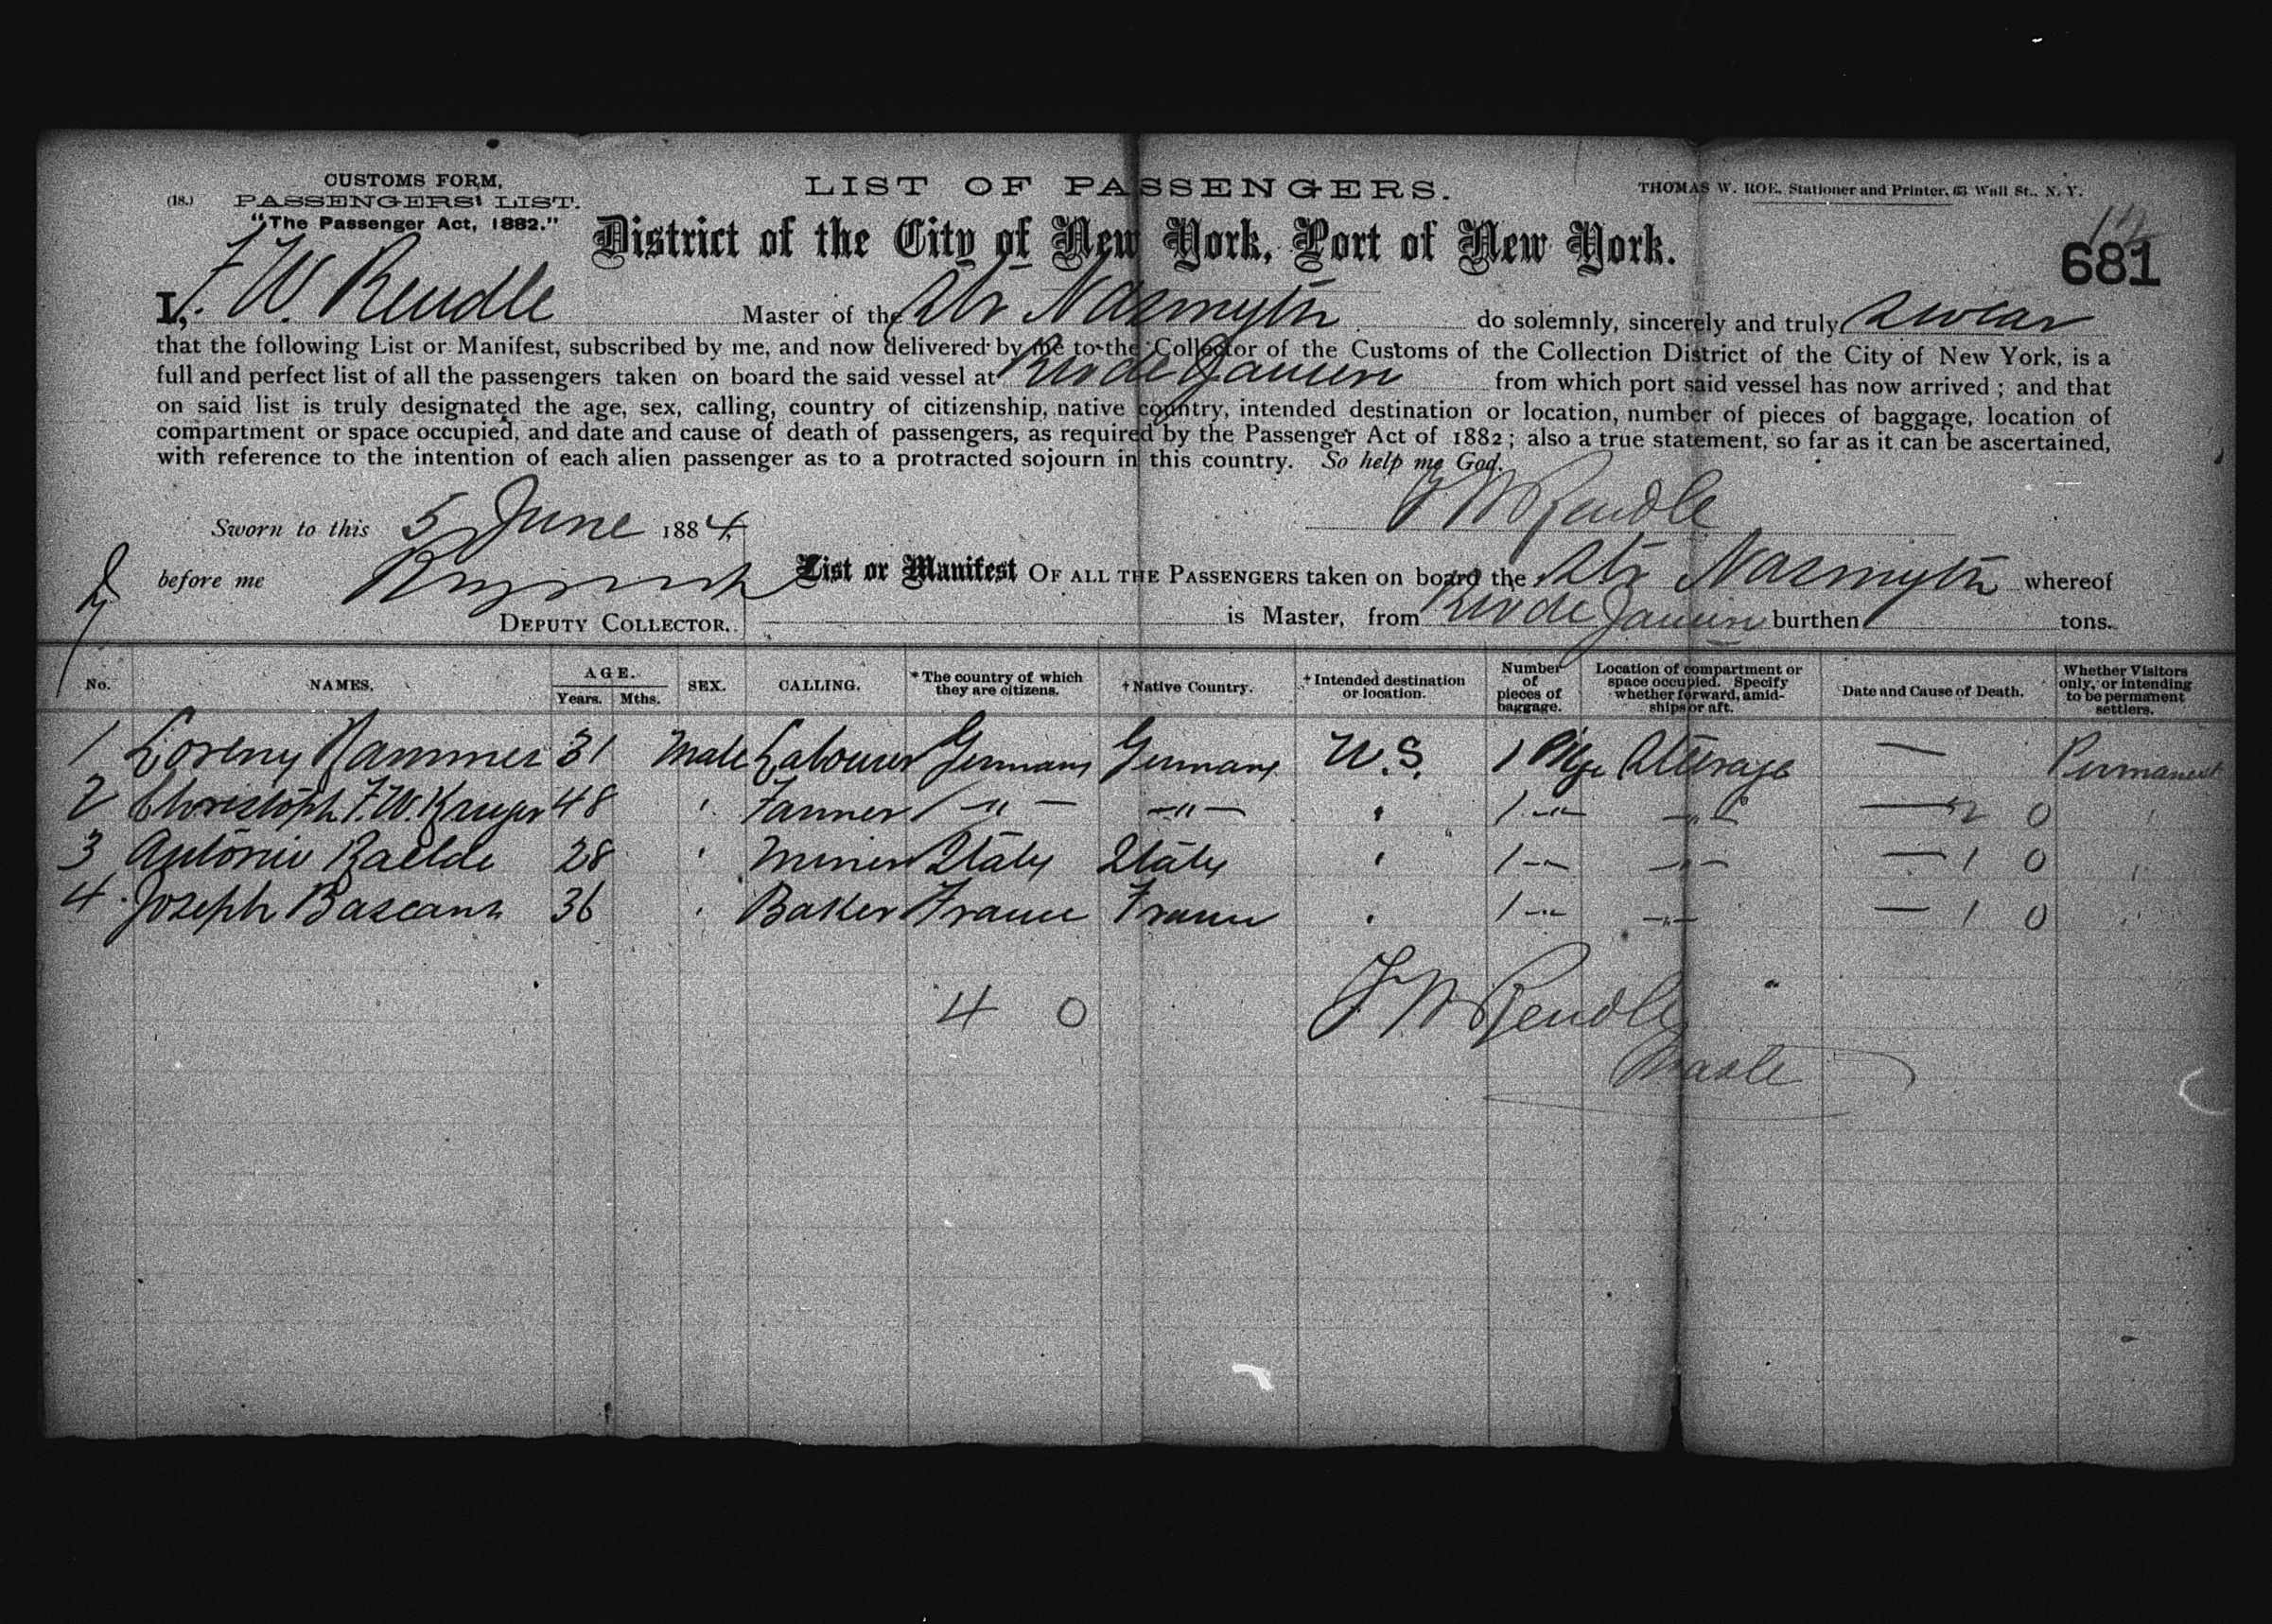 CUSTOMS FORM,
(18.) PASSENGERS' LIST.
"The Passenger Act, 1882."
LIST OF PASSENGERS.
THOMAS W. ROE, Stationer and Printer, 63 Wall St., N. Y.
District of the City of New York, Port of New York.
681
I, F. W. Rendle Master of the Str Nasmyth do solemnly, sincerely and truly swear
that the following List or Manifest, subscribed by me, and now delivered by me to the Collector of the Customs of the Collection District of the City of New York, is a
full and perfect list of all the passengers taken on board the said vessel at Rio de Janeiro from which port said vessel has now arrived ; and that
on said list is truly designated the age, sex, calling, country of citizenship, native country, intended destination or location, number of pieces of baggage, location of
compartment or space occupied, and date and cause of death of passengers, as required by the Passenger Act of 1882 ; also a true statement, so far as it can be ascertained,
with reference to the intention of each alien passenger as to a protracted sojourn in this country. So help me God.
F W Rendle
Sworn to this 5 June 1884,
before me
DEPUTY COLLECTOR.
List or Manifest OF ALL THE PASSENGERS taken on board the Str Nasmyth whereof
is Master, from Rio de Janeiro burthen tons.
No. NAMES. AGE. Years. Mths. SEX. CALLING. *The country of which they are citizens. †Native Country. †Intended destination or location. Number of pieces of baggage. Location of compartment or space occupied. Specify whether forward, amidships or aft. Date and Cause of Death. Whether Visitors only, or intending to be permanent settlers.
1 Lorenz Hammer 31 Male Labourer Germany Germany U.S. 1 Pkge Steerage — Permanent
2 Christoph F. W. Kruger 48 " Farmer — " — — " — " 1 — " — — " — — 2 0 "
3 Antonio 28 " Miner Italy Italy " 1 — " — — " — — 1 0 "
4 Joseph 36 " Baker France France " 1 — " — — " — — 1 0 "
4 0
F W Rendle
Master